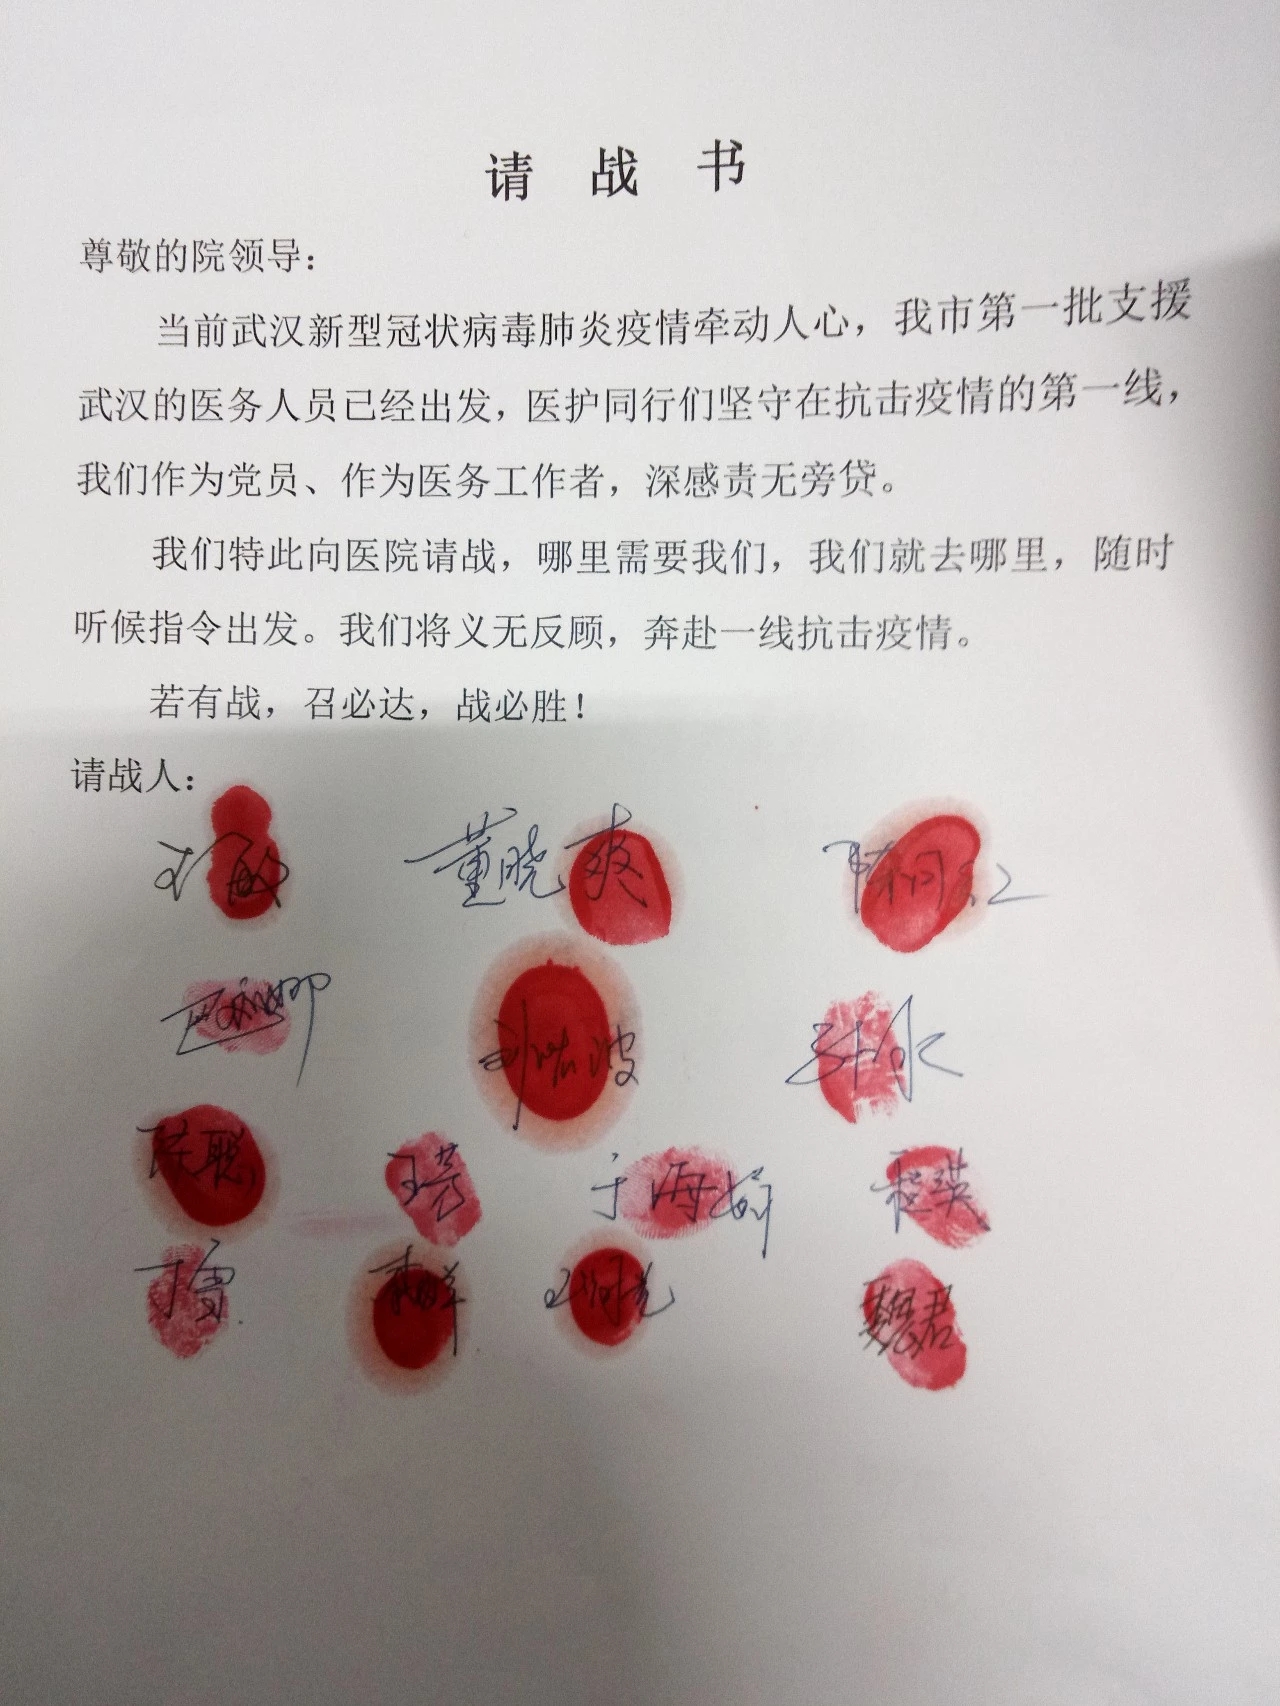 请战书
尊敬的院领导：
当前武汉新型冠状病毒肺炎疫情牵动人心，我市第一批支援
武汉的医务人员已经出发，医护同行们坚守在抗击疫情的第一线，
我们作为党员、作为医务工作者，深感责无旁贷。
我们特此向医院请战，哪里需要我们，我们就去哪里，随时
听候指令出发。我们将义无反顾，奔赴一线抗击疫情。
若有战，召必达，战必胜！
请战人：
董晓爽
于海
丁雪
魏君